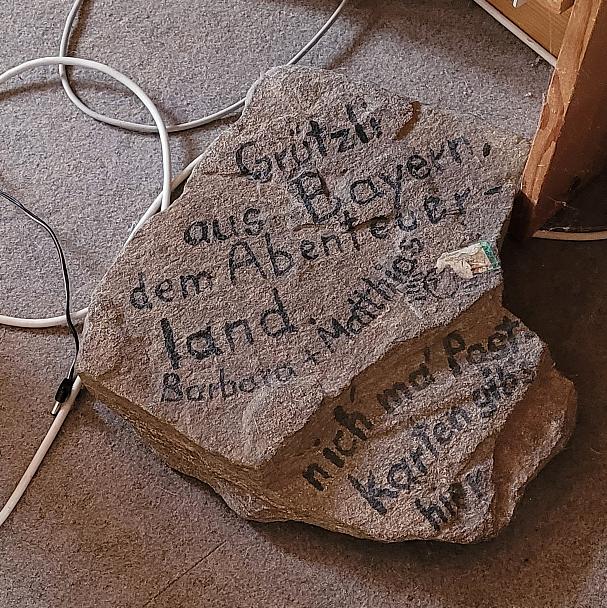 Grützli
aus Bayern,
dem Abenteuer-
land.
Barbara + Matthias
nich ma' Post
karten gibs
hier